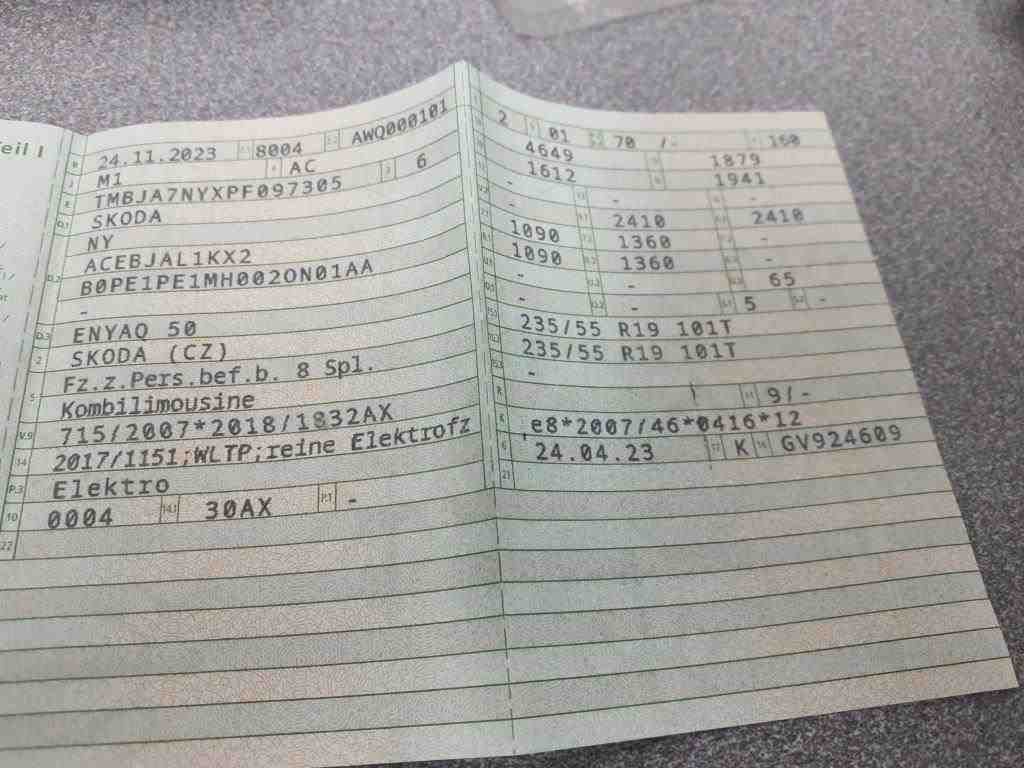 eil I
B 24.11.2023 2.1 8004 2.2 AWQ000101
J M1 4 AC 3 6
E TMBJA7NYXPF097305
D.1 SKODA
NY
D.2 ACEBJAL1KX2
B0PE1PE1MH002ON01AA
-
D.3 ENYAQ 50
2 SKODA (CZ)
5 Fz.z.Pers.bef.b. 8 Spl.
Kombilimousine
V.9 715/2007*2018/1832AX
14 2017/1151;WLTP;reine Elektrofz
P.3 Elektro
10 0004 14.1 30AX P.1 -
22
2 01 70 /- 160
4649 1879
1612 1941
- - -
- 2410 2410
1090 1360 -
1090 1360 -
- - 65
- - 5 -
235/55 R19 101T
235/55 R19 101T
-
R 11 9/-
K e8*2007/46*0416*12
6 24.04.23 17 K 16 GV924609
21